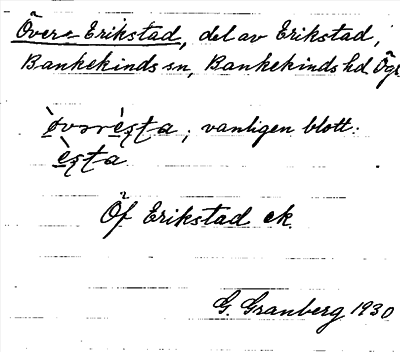 Övre Erikstad, del av Erikstad,
Bankekinds sn, Bankekinds hd Ögr.
òvərèsta; vanligen blott:
èsta
Öf Erikstad ek.
G. Granberg 1930